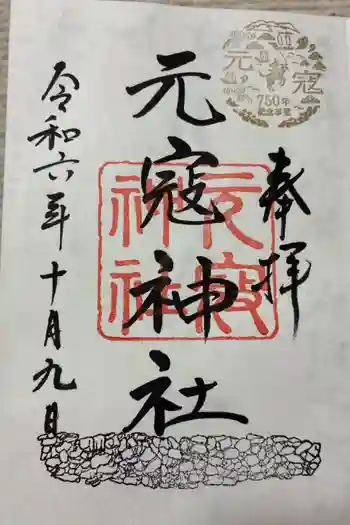 奉拝
元寇神社
元寇神社
令和六年十月九日
元寇
750年
記念事業